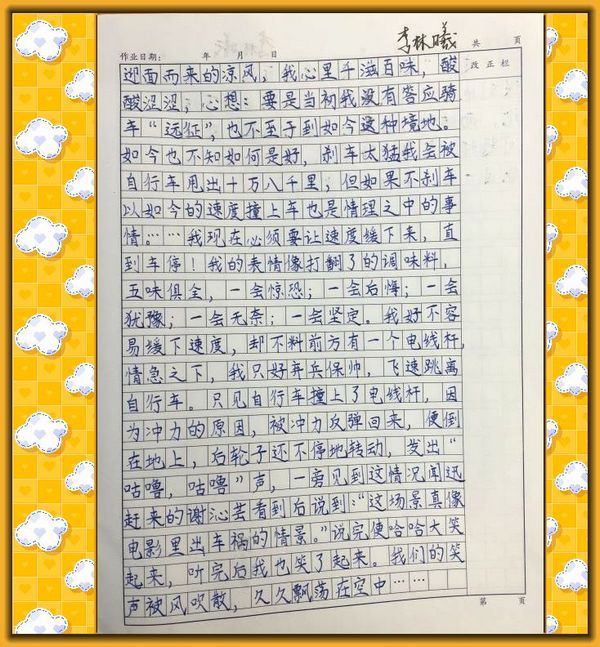 李林曦
共 页
作业日期： 年 月 日
改正栏
迎面而来的凉风，我心里千滋百味，酸
酸涩涩，心想：要是当初我没有答应骑
车“远征”，也不至于到如今这种境地。
如今也不知如何是好，刹车太猛我会被
自行车甩出十万八千里，但如果不刹车
以如今的速度撞上车也是情理之中的事
情。……我现在必须要让速度缓下来，直
到车停！我的表情像打翻了的调味料，
五味俱全，一会惊恐；一会后悔；一会
犹豫；一会无奈；一会坚定。我好不容
易缓下速度，却不料前方有一个电线杆，
情急之下，我只好弃兵保帅，飞速跳离
自行车。只见自行车撞上了电线杆，因
为冲力的原因，被冲力反弹回来，便倒
在地上，后轮子还不停地转动，发出“
咕噜，咕噜”声，一旁见到这情况闻迅
赶来的谢沁芸看到后说到：“这场景真像
电影里出车祸的情景。”说完便哈哈大笑
起来，听完后我也笑了起来。我们的笑
声被风吹散，久久飘荡在空中……
第 页